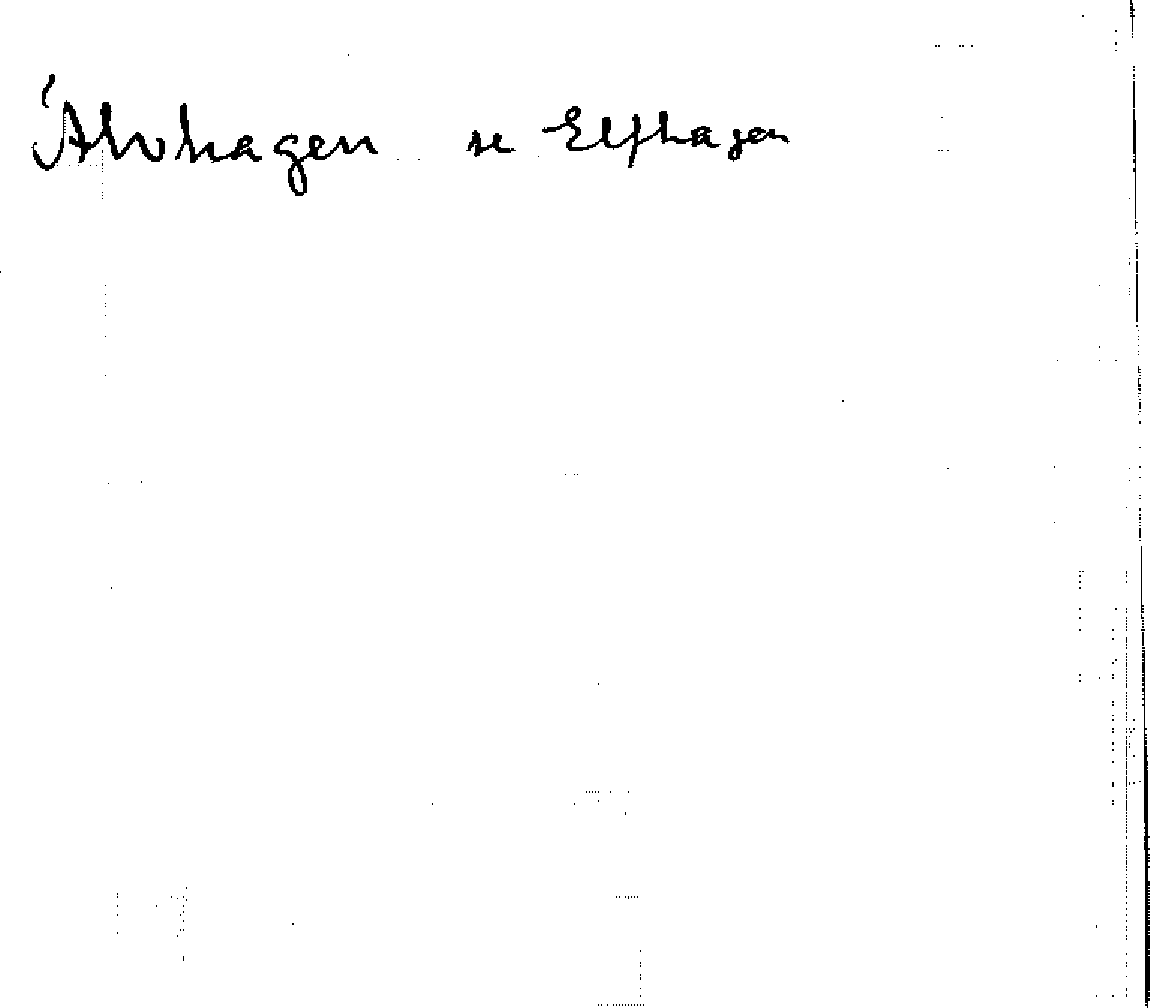 Älvhagen se Elfhagen